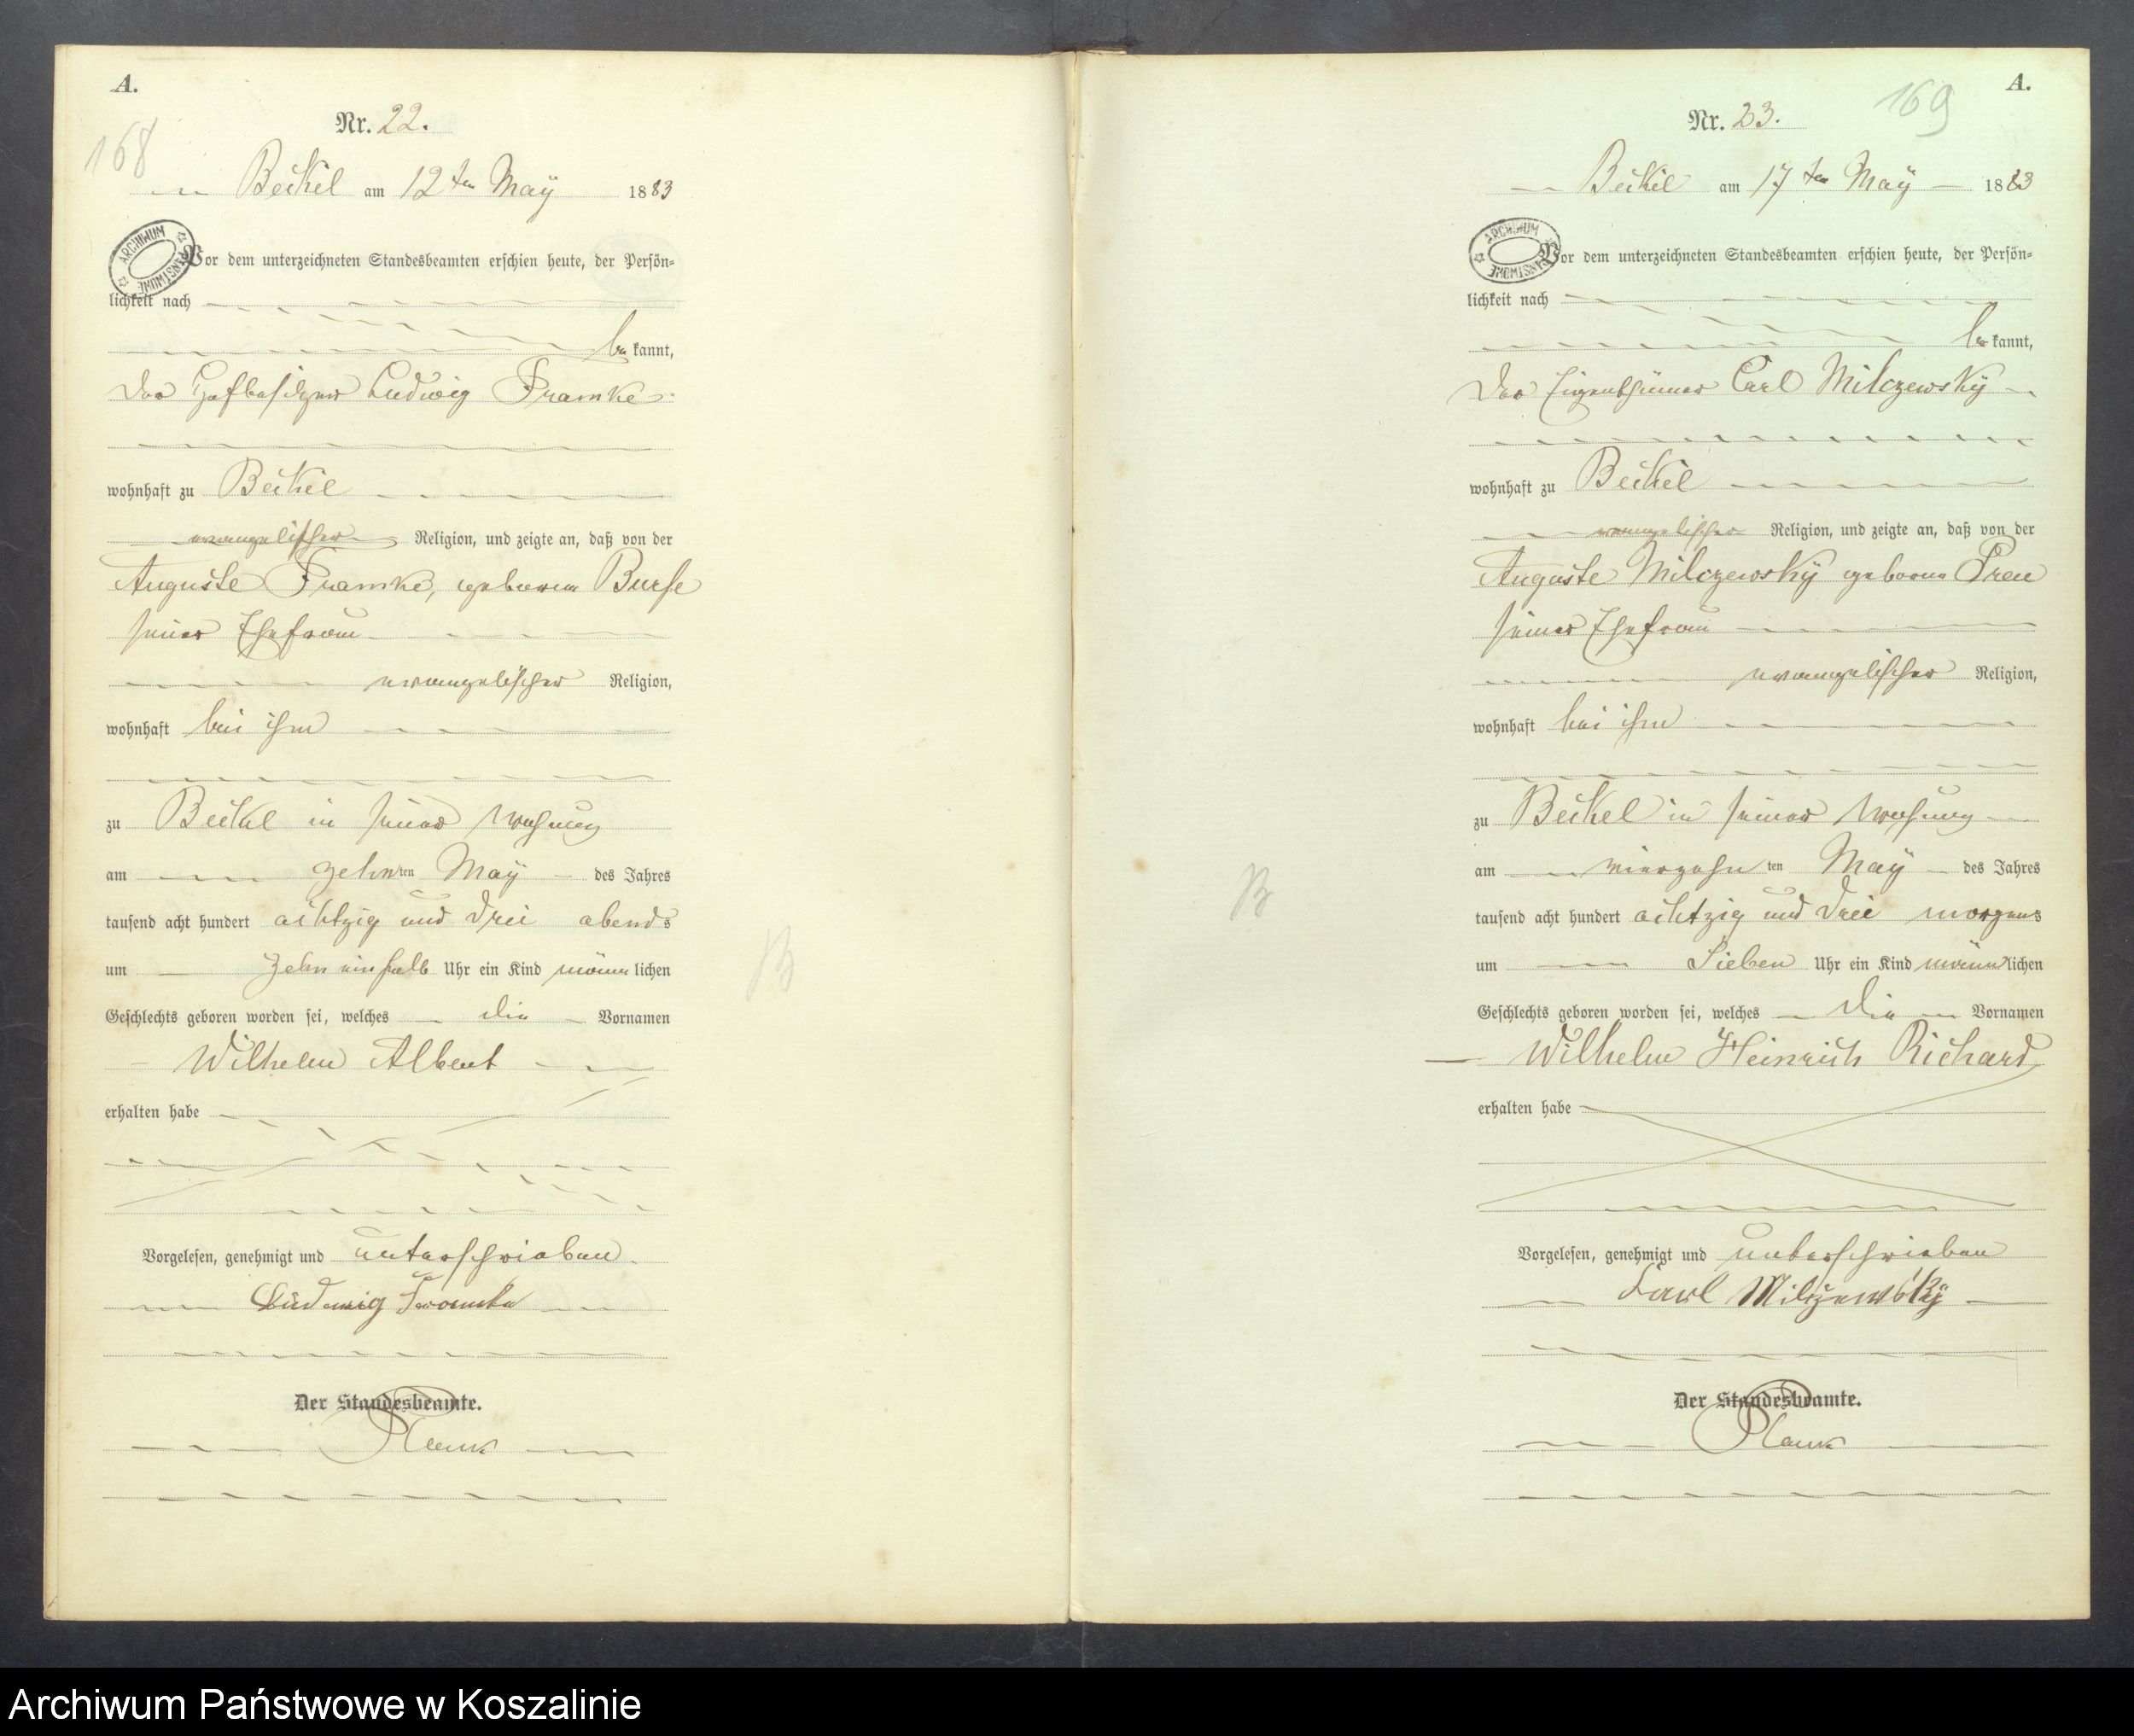 A.
Nr. 22.
168
Beckel am 12ten Maÿ 1883
ARCHIWUM PAŃSTWOWE
Vor dem unterzeichneten Standesbeamten erschien heute, der Persön=
lichkeit nach
be kannt,
der Hofbesitzer Ludwig Framke
wohnhaft zu Beckel
evangelischer Religion, und zeigte an, daß von der
Auguste Framke, geborene
seiner Ehefrau
evangelischer Religion,
wohnhaft bei ihm
zu Beckel in seiner Wohnung
am zehn ten Maÿ des Jahres
tausend acht hundert achtzig und drei abends
um zehn einhalb Uhr ein Kind männ lichen
Geschlechts geboren worden sei, welches die Vornamen
Wilhelm Albert
erhalten habe
Vorgelesen, genehmigt und unterschrieben
Ludwig Framke
Der Standesbeamte.
A.
Nr. 23.
169
Beckel am 17ten Maÿ 1883
ARCHIWUM PAŃSTWOWE
Vor dem unterzeichneten Standesbeamten erschien heute, der Persön=
lichkeit nach
be kannt,
der Eigenthümer Carl Milczewskÿ
wohnhaft zu Beckel
evangelischer Religion, und zeigte an, daß von der
Auguste Milczewskÿ geborne
seiner Ehefrau
evangelischer Religion,
wohnhaft bei ihm
zu Beckel in seiner Wohnung
am vierzehn ten Maÿ des Jahres
tausend acht hundert achtzig und drei morgens
um Sieben Uhr ein Kind männ lichen
Geschlechts geboren worden sei, welches die Vornamen
Wilhelm Heinrich Richard
erhalten habe
Vorgelesen, genehmigt und unterschrieben
Carl Milczewskÿ
Der Standesbeamte.
Archiwum Państwowe w Koszalinie